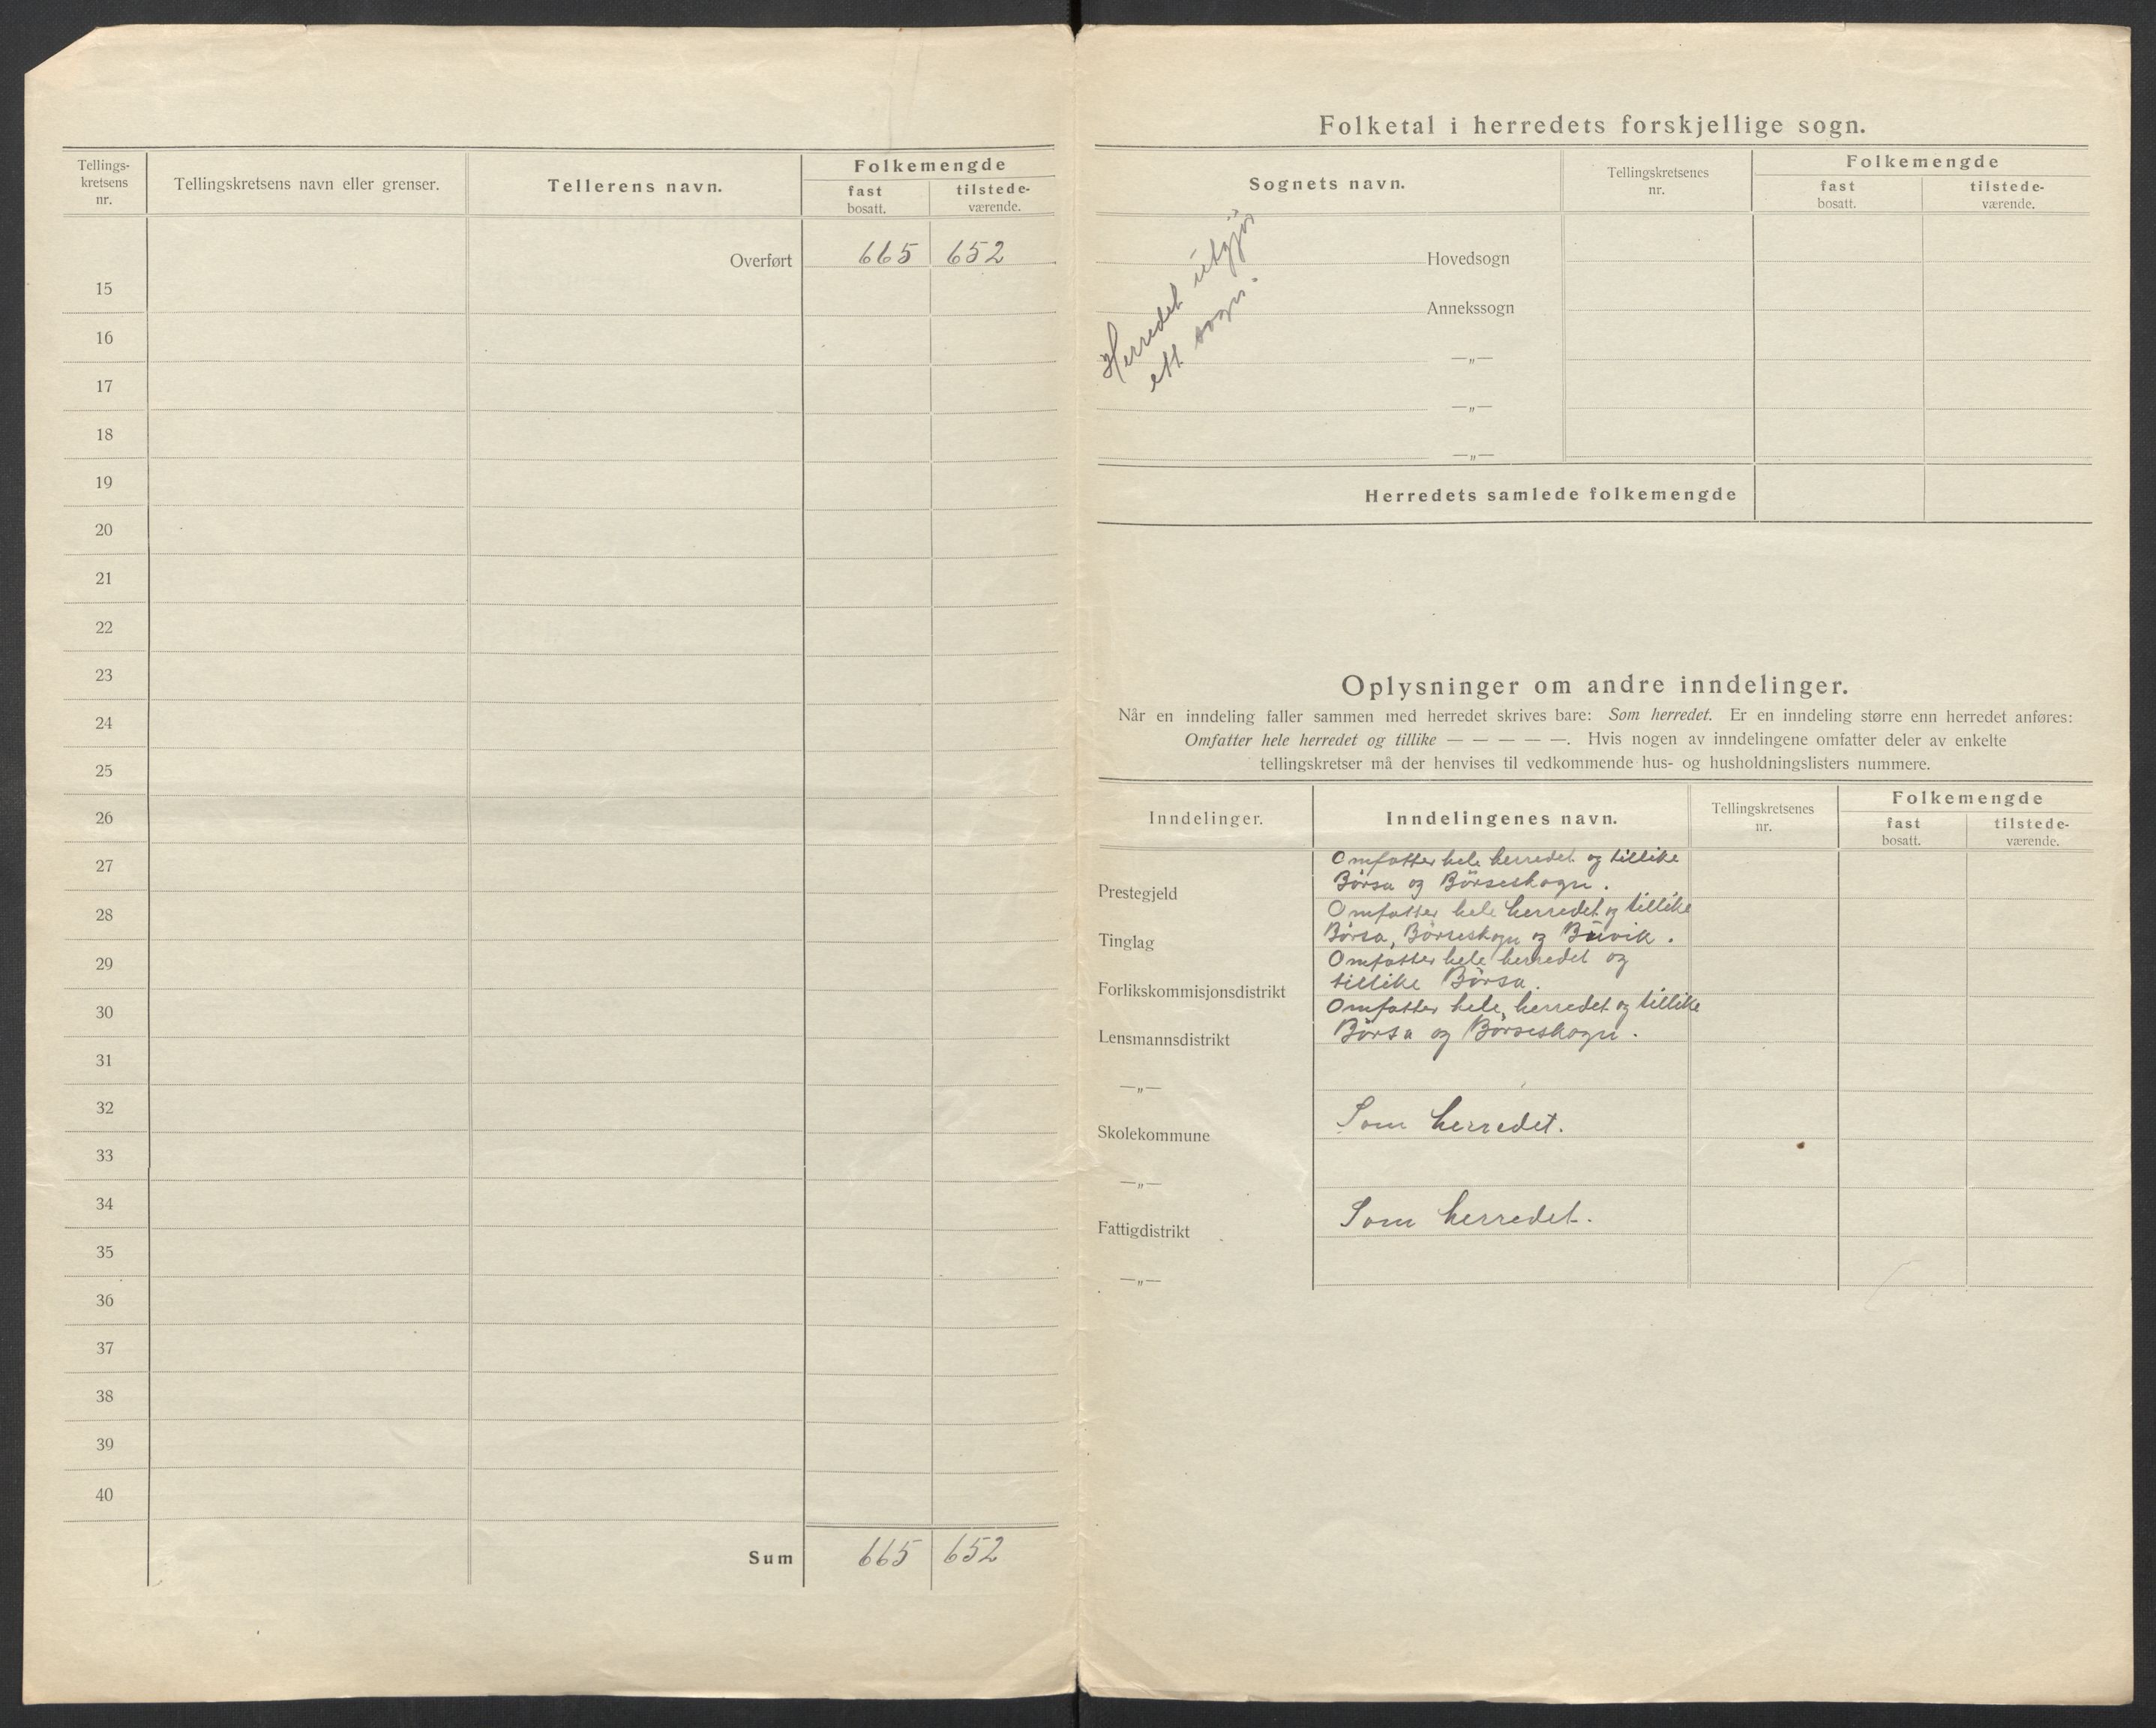 Tellings-
kretsens
nr.
Tellingskretsens navn eller grenser.
Tellerens navn.
Folkemengde
fast
bosatt.
tilstede-
værende.
Overført 665 652
15
16
17
18
19
20
21
22
23
24
25
26
27
28
29
30
31
32
33
34
35
36
37
38
39
40
Sum 665 652
Folketal i herredets forskjellige sogn.
Sognets navn.
Tellingskretsenes
nr.
Folkemengde
fast
bosatt.
tilstede-
værende.
Herredet utgjör
ett sogn.
Hovedsogn
Annekssogn
—„—
—„—
—„—
Herredets samlede folkemengde
Oplysninger om andre inndelinger.
Når en inndeling faller sammen med herredet skrives bare: Som herredet. Er en inndeling større enn herredet anføres:
Omfatter hele herredet og tillike — — — — —. Hvis nogen av inndelingene omfatter deler av enkelte
tellingskretser må der henvises til vedkommende hus- og husholdningslisters nummere.
Inndelinger.
Inndelingenes navn.
Tellingskretsenes
nr.
Folkemengde
fast
bosatt.
tilstede-
værende.
Omfatter hele herredet og tillike
Prestegjeld Börsa og Börseskogn.
Omfatter hele herredet og tillike
Tinglag Börsa, Börseskogn og Buvik.
Omfatter hele herredet og
Forlikskommisjonsdistrikt tillike Börsa.
Omfatter hele herredet og tillike
Lensmannsdistrikt Börsa og Börseskogn.
—„—
Skolekommune Som herredet.
—„—
Fattigdistrikt Som herredet.
—„—